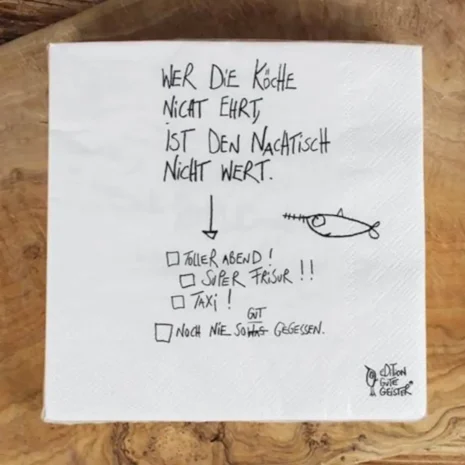 WER DIE KÖCHE
NICHT EHRT,
IST DEN NACHTISCH
NICHT WERT.
TOLLER ABEND!
SUPER FRISUR!!
TAXI!
GUT
NOCH NIE SO WAS GEGESSEN.
EDITION
GUTE
GEISTER